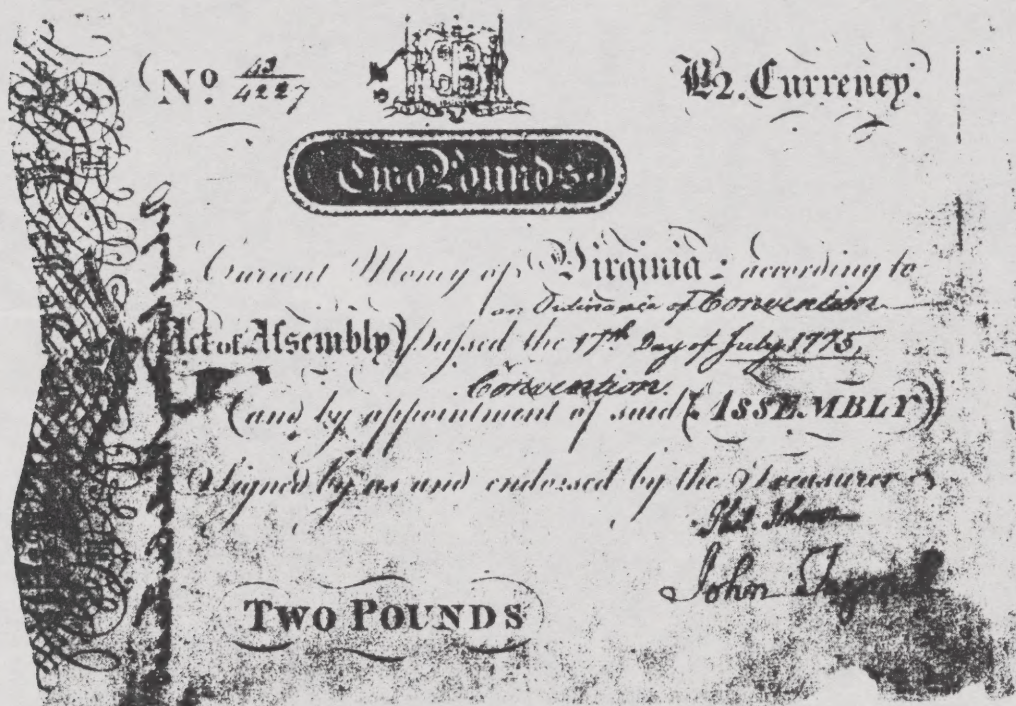 No 43/4227
£2. Currency.
Two Pounds
Current Money of Virginia: according to
an Ordinance of Convention
Act of Assembly Passed the 17th Day of July 1775,
Convention
and by appointment of said (ASSEMBLY)
Signed by us and endorsed by the Treasurer
Phil Johnson
John
TWO POUNDS